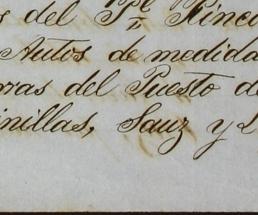 s del Pl Rinco
Autos de medida
rras del Puesto de
inillas, Sauz y L